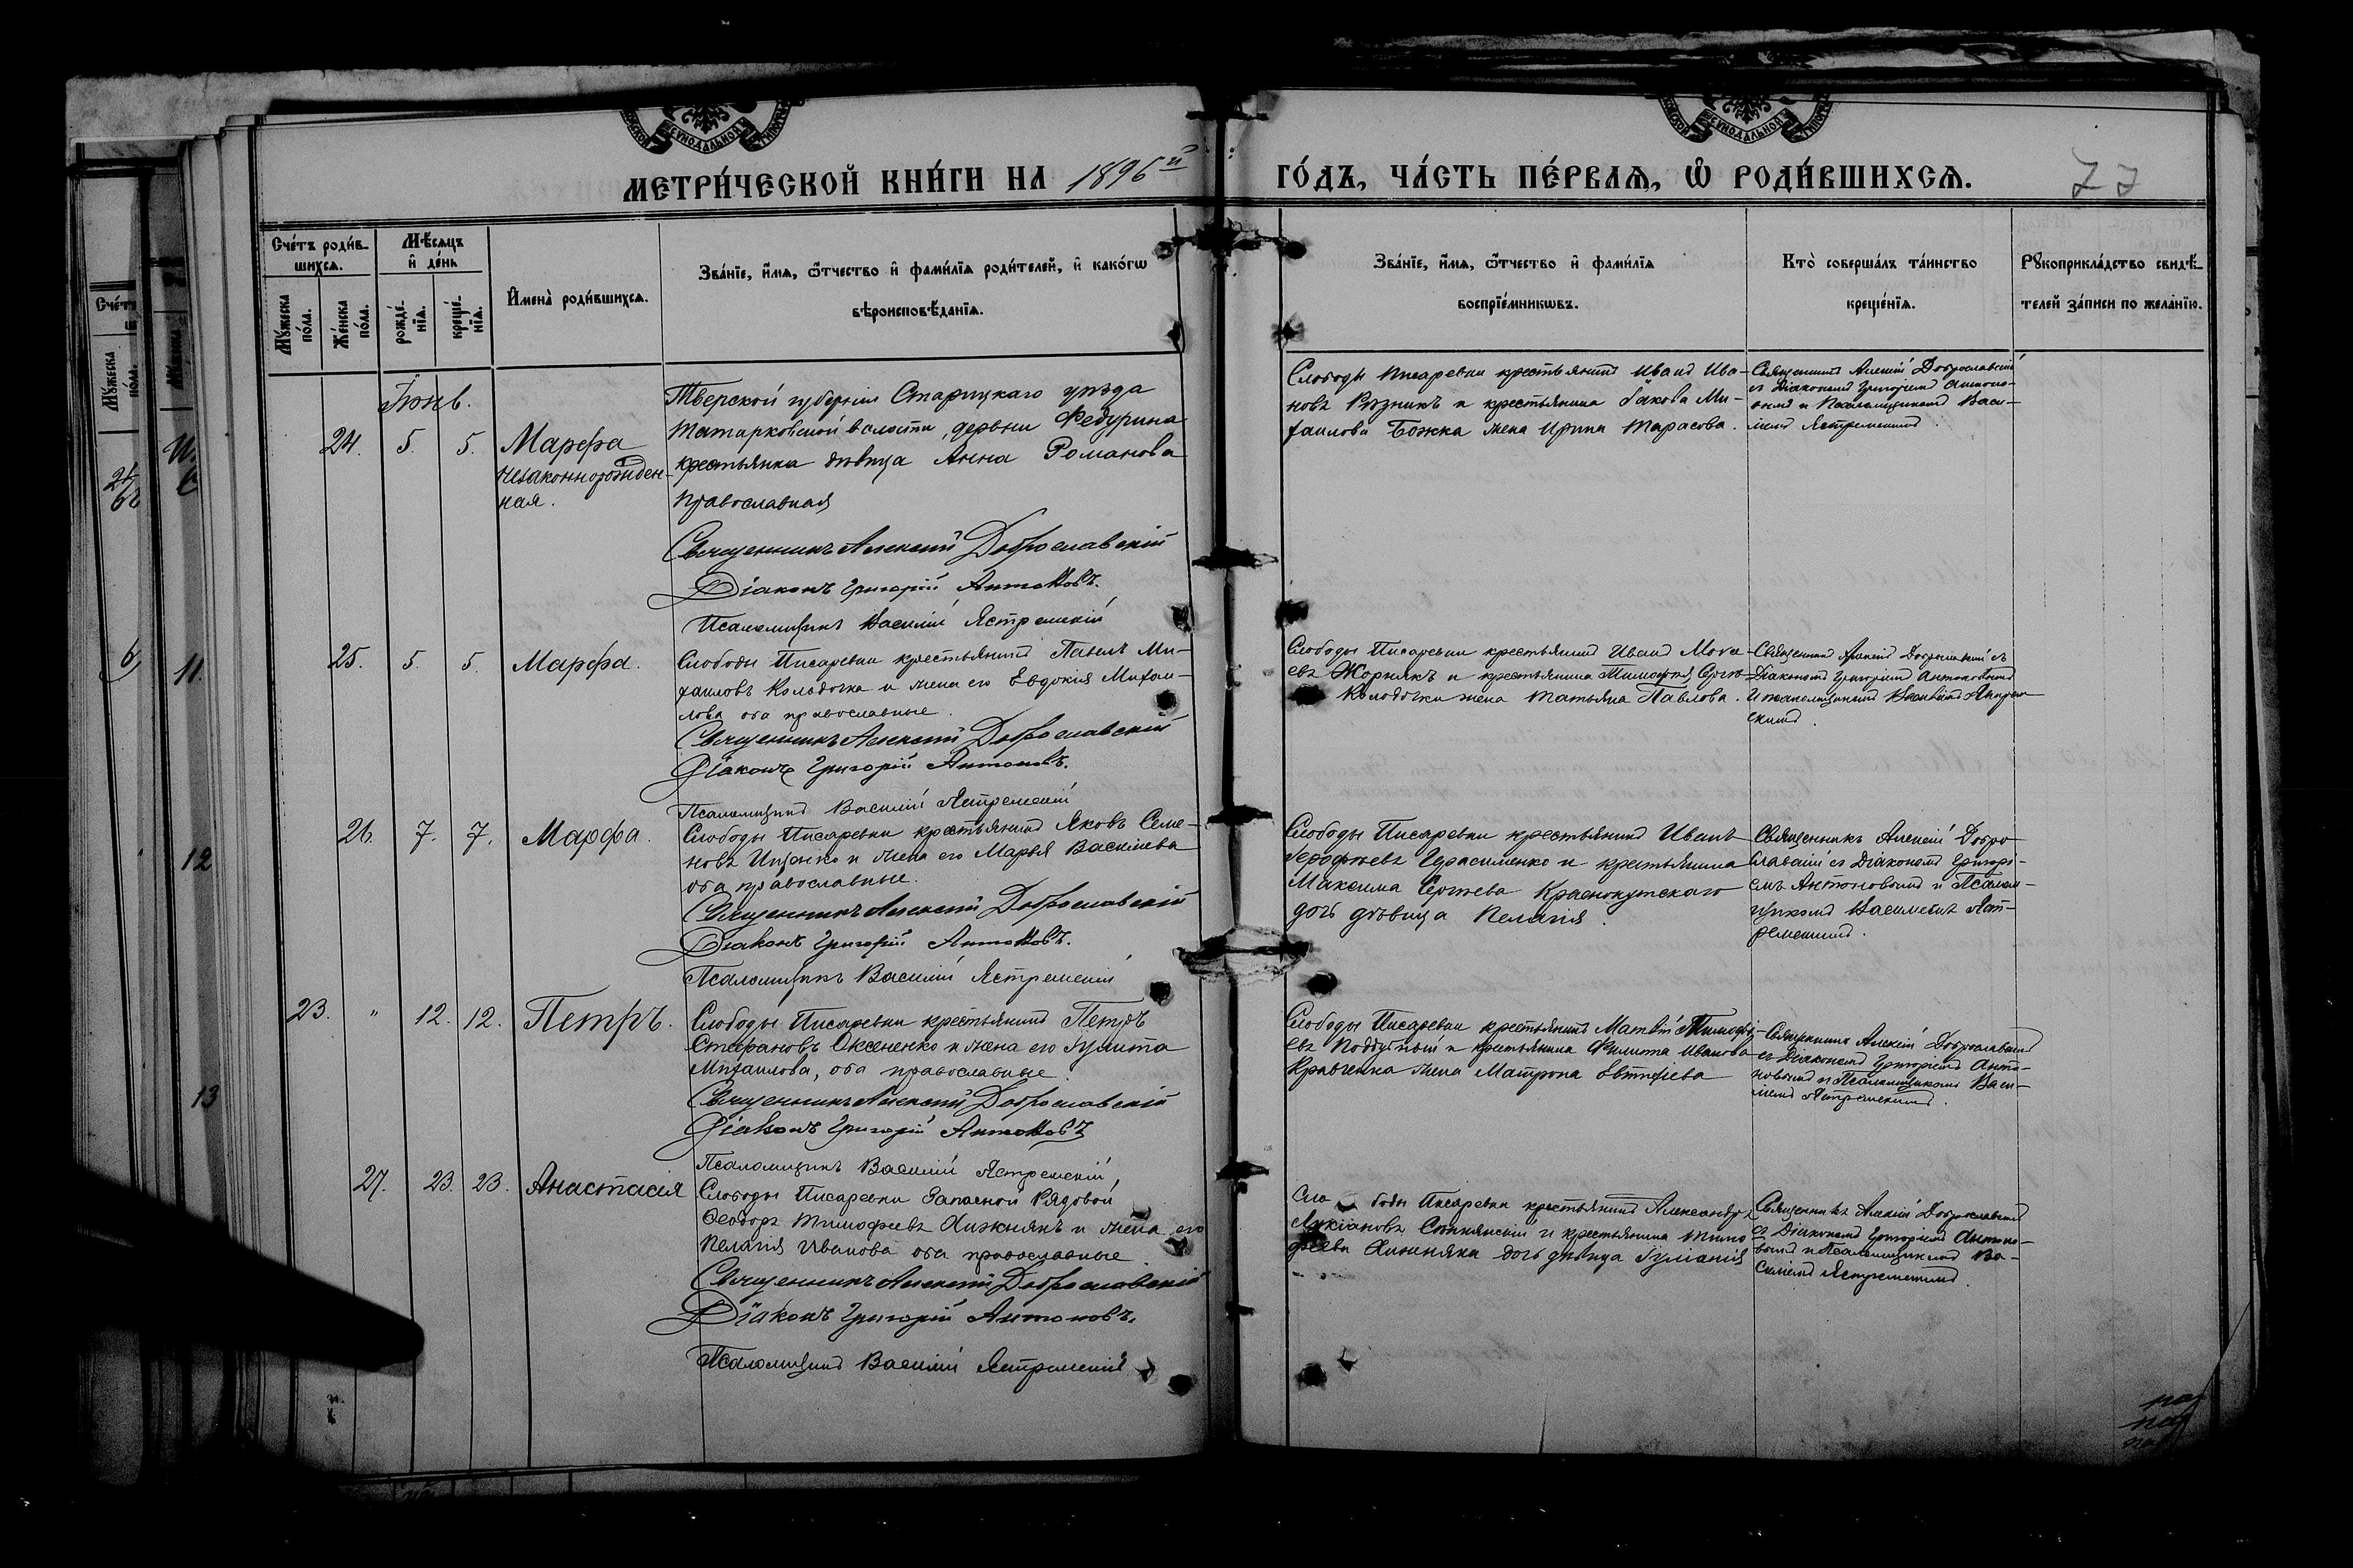 МЕТРИ́ЧЕСКОЙ КНИ́ГИ НА 1896й
ГО́ДЪ, ЧА́СТЬ ПЕ́РВАѦ, Ѡ҆ РОДИ́ВШИХСѦ.
77
Сче́тъ роди́в-
шихсѧ.
Мѣ́сѧцъ
и҆ де́нь
Мꙋ́жеска
по́ла.
Же́нска
по́ла.
рожде́-
нїѧ.
креще́-
нїѧ.
И҆мена̀ роди́вшихсѧ.
Зва́нїе, и҆́мѧ, ѻ҆́тчество и҆ фами́лїѧ роди́телей, и҆ како́гѡ
вѣроисповѣ́данїѧ.
Зва́нїе, и҆́мѧ, ѻ҆́тчество и҆ фами́лїѧ
воспрїе́мникѡвъ.
Кто̀ соверша́лъ та́инство
креще́нїѧ.
Рꙋкоприкла́дство свидѣ́-
телей за́писи по жела́нїю.
Іюнь.
24. 5. 5. Марфа
незаконнорожден-
ная.
Тверской губерніи Старицкаго уѣзда
Татарковской волости, деревни Федурина
крестьянка дѣвица Анна Романова
православная
Священникъ Алексій Доброславскій
Діаконъ Григорій Антоновъ.
Псаломщикъ Василій Ястремскій
Слободы Писаревки крестьянинъ Иванъ Ива-
новъ Рѣзникъ и крестьянина Іакова Ми-
хаилова Божка жена Ирина Тарасова.
Священникъ Алексій Доброславскій
съ Діакономъ Григоріемъ Антоно-
вымъ и Псаломщикомъ Васи-
ліемъ Ястремскимъ.
25. 5. 5. Марфа.
Слободы Писаревки крестьянинъ Павелъ Ми-
хаиловъ Колядочка и жена его Евдокія Михаи-
лова оба православные.
Священникъ Алексій Доброславскій
Діаконъ Григорій Антоновъ.
Псаломщикъ Василій Ястремскій
Слободы Писаревки крестьянинъ Иванъ
евъ Жорнякъ и крестьянина Тимофея
жена Татьяна Павлова.
Священникъ Алексій Доброславскій съ
Діакономъ Григоріемъ Антоновымъ
и псаломщикомъ Василіемъ Ястрем-
скимъ.
26. 7. 7. Марфа.
Слободы Писаревки крестьянинъ Яковъ Семе-
новъ Ищенко и жена его Марья Василіева
оба православные.
Священникъ Алексій Доброславскій
Діаконъ Григорій Антоновъ.
Псаломщикъ Василій Ястремскій
Слободы Писаревки крестьянинъ Иванъ
Іерофѣевъ Герасименко и крестьянина
Максима Сергѣева Краснокутскаго
дочь дѣвица Пелагія.
Священникъ Алексій Добро-
славскій съ Діакономъ Григорі-
емъ Антоновымъ и Псалом-
щикомъ Василіемъ Яст-
ремскимъ.
23. " 12. 12. Петръ.
Слободы Писаревки крестьянинъ Петръ
Стефановъ Оксененко и жена его Іулитта
Михаилова, оба православные.
Священникъ Алексій Доброславскій
Діаконъ Григорій Антоновъ
Псаломщикъ Василій Ястремскій
Слободы Писаревки крестьянинъ Матвій Тимофѣ-
евъ Поддубный и крестьянина Филиппа Иванова
Кравченка жена Матрона Евтихіева
Священникъ Алексій Доброславскій
съ Діакономъ Григоріемъ Анто-
новымъ и Псаломщикомъ Васи-
ліемъ Ястремскимъ.
27. 23. 23. Анастасія
Слободы Писаревки Запасной Рядовой
Ѳеодоръ Тимофеевъ Хижнякъ и жена его
Пелагія Иванова оба православные
Священникъ Алексій Доброславскій
Діаконъ Григорій Антоновъ.
Псаломщикъ Василій Ястремскій
Слободы Писаревки крестьянинъ Александръ
Лукіановъ и крестьянина Тимо-
феева Хижняка дочь дѣвица Іуліанія
Священникъ Алексій Доброславскій
съ Діакономъ Григоріемъ Антоно-
вымъ и Псаломщикомъ Ва-
силіемъ Ястремскимъ.
11.
12
13